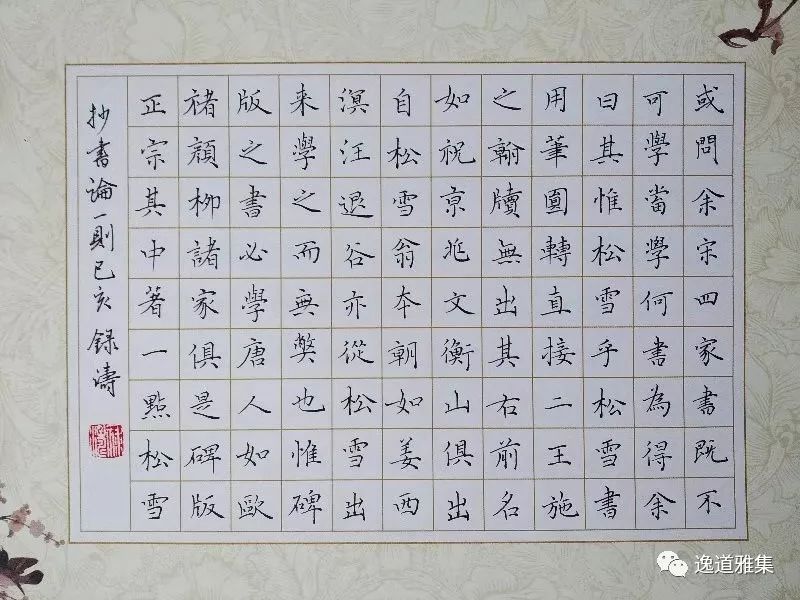 或問余宋四家書既不
可學當學何書為得余
曰其惟松雪乎松雪書
用筆圓轉直接二王施
之翰牘無出其右前名
如祝亰兆文衡山俱出
自松雪翁本朝如姜西
溟汪退谷亦從松雪出
来學之而無弊也惟碑
版之書必學唐人如歐
褚顏柳諸家俱是碑版
正宗其中著一點松雪
抄書論一則己亥錄濤
逸道雅集